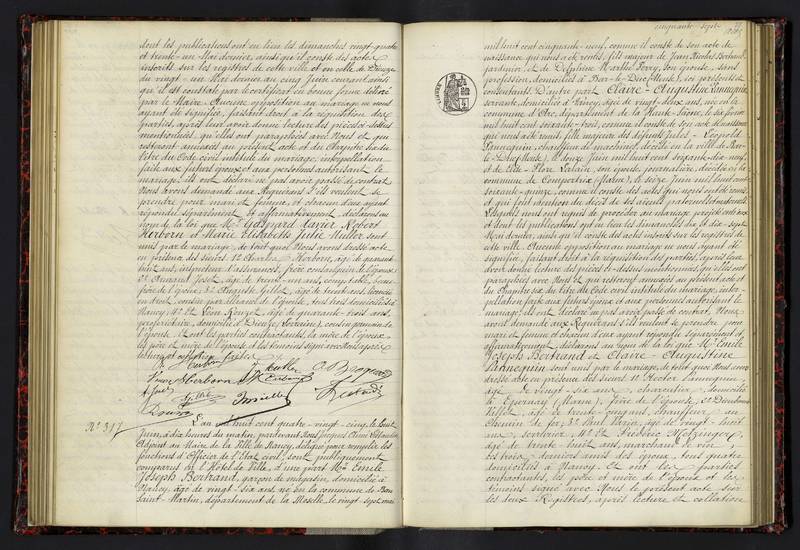 dont les publications ont eu lieu les dimanches vingt-quatre
et trente-un Mai dernier, ainsi qu'il conste des actes
inscrits sur les registres de cette ville et en celle de Dieuze
du vingt-un Mai dernier au cinq Juin courant ainsi
qu'il est constaté par le certificat en bonne forme délivré
par le Maire. Aucune opposition au mariage ne nous
ayant été signifiée, faisant droit à la réquisition des
parties, après leur avoir donné lecture des pièces ci-dessus
mentionnées, qu'elles ont paraphées avec Nous et qui
resteront annexées au présent acte et du Chapitre six du
Titre du Code civil intitulé du mariage, interpellation
faite aux futurs époux et aux personnes autorisant le
mariage, ils ont déclaré ne pas avoir passé de contrat,
Nous avons demandé aux Requérans s'ils veulent se
prendre pour mari et femme, et chacun d'eux ayant
répondu séparément et affirmativement, déclarons au
nom de la loi que Mr Gaspard Xavier Robert
Herborn et Marie Elisabeth Julie Muller sont
unis par le mariage, de tout quoi Nous avons dressé acte
en présence des sieurs 1° Charles Herborn, âgé de quarante
huit ans, inspecteur d'assurances, frère consanguin de l'époux
2° Armant Joset, âgé de trente-un ans, comptable, beau-
frère de l'époux, 3° Auguste Gillet, âgé de trente ans, licencié
en droit, cousin par alliance de l'épouse, tous trois domiciliés à
Nancy, 4° Et Léon Rouyer, âgé de quarante-trois ans,
propriétaire, domicilié à Dieuze (Lorraine), cousin germain de
l'épouse. Et ont les parties contractantes, la mère de l'époux,
les père et mère de l'épouse et les témoins signé avec Nous après
lecture et collation faites.
Herborn Muller
Herborn
Gillet
Rouyer
N° 317
L'an mil huit cent quatre-vingt-cinq, le huit
Juin, à dix heures du matin, pardevant Nous
Adjoint au Maire de la Ville de Nancy, délégué pour remplir les
fonctions d'Officier de l'Etat civil, sont publiquement
comparus en l'Hôtel de Ville, d'une part Mr Emile
Joseph Bertrand, garçon de magasin, domicilié à
Nancy, âgé de vingt-six ans, né en la commune de Ban
Saint-Martin, département de la Moselle, le vingt-sept mai
cinquante-sept
mil huit cent cinquante-neuf, comme il conste de son acte de
naissance qui nous a été remis, fils majeur de Jean Nicolas Bertrand,
et de Delphine Marthe Ferry, son épouse, sans
profession, domiciliés à Bar-le-Duc (Meuse), ici présents et
consentants. D'autre part Claire-Augustine Pannequin,
servante, domiciliée à Nancy, âgée de vingt-deux ans, née en la
commune d'Arc, département de la Haute-Saône, le six février
mil huit cent soixante-trois, comme il conste de son acte de naissance
qui nous a été remis, fille majeure des défunts Jules-Léopold
Pannequin, chauffeur de machines, décédé en la ville de Bar-
le-Duc (Meuse), le douze Juin mil huit cent soixante-dix-neuf,
et de son épouse, journalière, décédée en la
commune de le seize Juin mil huit cent
soixante-quinze, comme il conste des actes qui nous ont été remis
et qui font mention du décès de ses aïeuls paternels et maternels.
Lesquels nous ont requis de procéder au mariage projeté entr'eux
et dont les publications ont eu lieu les dimanches dix et dix-sept
Mai dernier, ainsi qu'il conste des actes inscrits sur les registres de
cette ville. Aucune opposition au mariage ne Nous ayant été
signifiée, faisant droit à la réquisition des parties, après leur
avoir donné lecture des pièces ci-dessus mentionnées, qu'elles ont
paraphées avec Nous et qui resteront annexées au présent acte et
du Chapitre six du Titre du Code civil intitulé du mariage, inter-
pellation faite aux futurs époux et aux personnes autorisant le
mariage, ils ont déclaré ne pas avoir passé de contrat, Nous
avons demandé aux Requérans s'ils veulent se prendre pour
mari et femme et chacun d'eux ayant répondu séparément et
affirmativement, déclarons au nom de la loi que Mr Emile
Joseph Bertrand et Claire-Augustine
Pannequin sont unis par le mariage, de tout quoi Nous avons
dressé acte en présence des sieurs 1° Hector Pannequin,
âgé de vingt-six ans, charcutier, domicilié
à Epernay (Marne), frère de l'épouse, 2°
âgé de trente-cinq ans, chauffeur au
Chemin de fer, 3° Paul Marie, âgé de vingt-huit
ans, serrurier, 4° Et Frédéric Metzinger,
âgé de trente huit ans, marchand de vin, les
trois derniers amis des époux, tous quatre
domiciliés à Nancy. Et ont les parties
contractantes, les père et mère de l'époux et les
témoins signé avec Nous le présent acte sur
les deux Registres, après lecture et collation